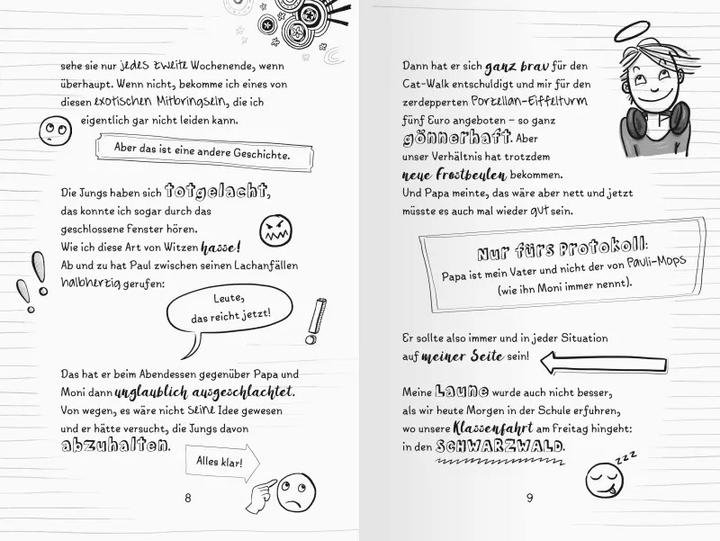 sehe sie nur jedes zweite Wochenende, wenn
überhaupt. Wenn nicht, bekomme ich eines von
diesen exotischen Mitbringseln, die ich
eigentlich gar nicht leiden kann.
Aber das ist eine andere Geschichte.
Die Jungs haben sich totgelacht,
das konnte ich sogar durch das
geschlossene Fenster hören.
Wie ich diese Art von Witzen hasse!
Ab und zu hat Paul zwischen seinen Lachanfällen
halbherzig gerufen:
Leute,
das reicht jetzt!
Das hat er beim Abendessen gegenüber Papa und
Moni dann unglaublich ausgeschlachtet.
Von wegen, es wäre nicht seine Idee gewesen
und er hätte versucht, die Jungs davon
abzuhalten.
Alles klar!
8
Dann hat er sich ganz brav für den
Cat-Walk entschuldigt und mir für den
zerdepperten Porzellan-Eiffelturm
fünf Euro angeboten – so ganz
gönnerhaft. Aber
unser Verhältnis hat trotzdem
neue Frostbeulen bekommen.
Und Papa meinte, das wäre aber nett und jetzt
müsste es auch mal wieder gut sein.
Nur fürs Protokoll:
Papa ist mein Vater und nicht der von Pauli-Mops
(wie ihn Moni immer nennt).
Er sollte also immer und in jeder Situation
auf meiner Seite sein!
Meine Laune wurde auch nicht besser,
als wir heute Morgen in der Schule erfuhren,
wo unsere Klassenfahrt am Freitag hingeht:
in den SCHWARZWALD.
zzz
9